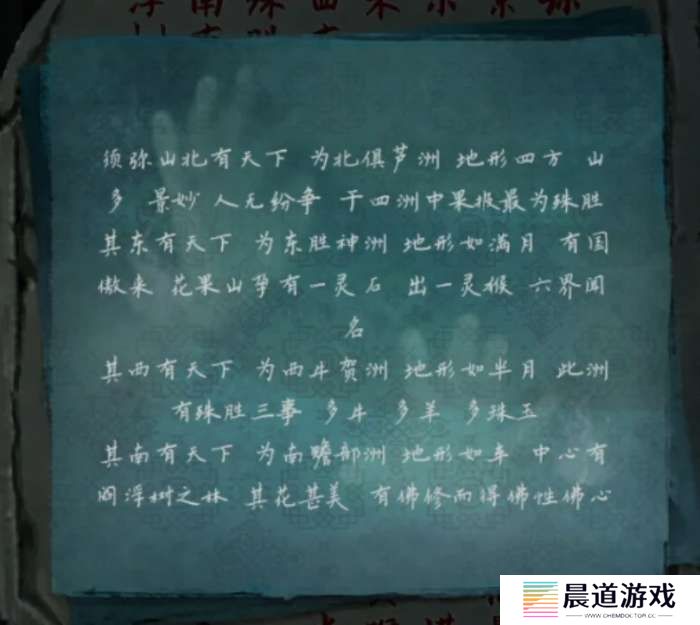 须弥山北有天下 为北俱芦洲 地形四方 山
多 景妙 人无纷争 于四洲中果报最为殊胜
其东有天下 为东胜神洲 地形如满月 有国
傲来 花果山孕有一灵石 出一灵猴 六界闻
名
其西有天下 为西牛贺洲 地形如半月 此洲
有殊胜三事 多牛 多羊 多珠玉
其南有天下 为南瞻部洲 地形如车 中心有
阎浮树之林 其花甚美 有佛修而得佛性佛心
晨道游戏
WWW.CHEMDOK.TOP.CC